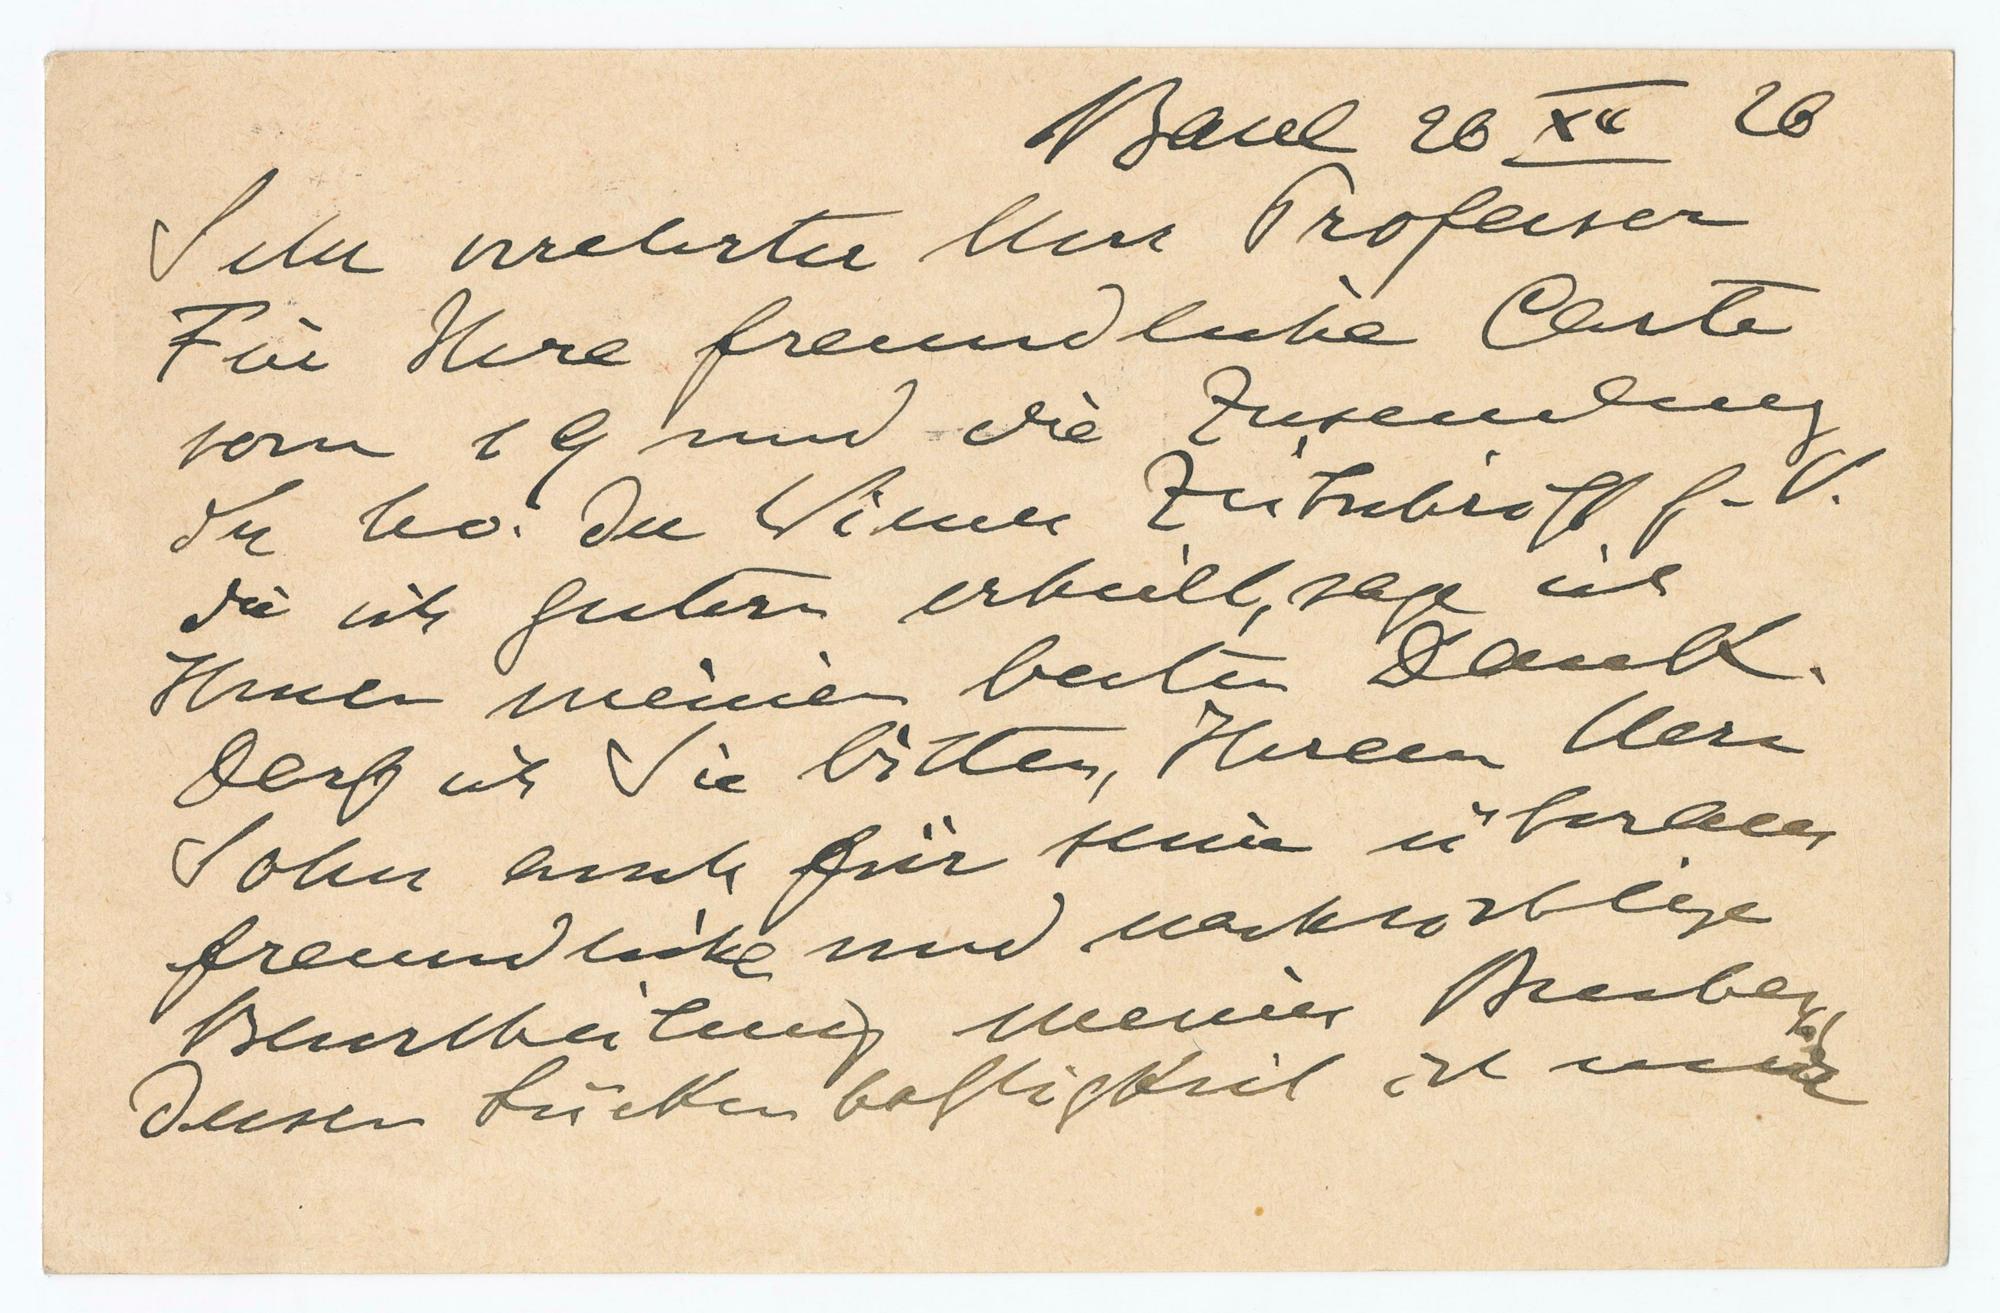 Basel 26 XII 26
Sehr verehrter Herr Professor
Für Ihre freundliche Carte
vom 19 und die Zusendung
der No. der Wiener Zeitschrift f. V.
die ich gestern erhielt, sage ich
Ihnen meinen besten Dank.
Darf ich Sie bitten, Ihrem Herrn
Sohn auch für seine überaus
freundliche und nachsichtige
Beurtheilung meines
dessen Lückenhaftigkeit ist mir